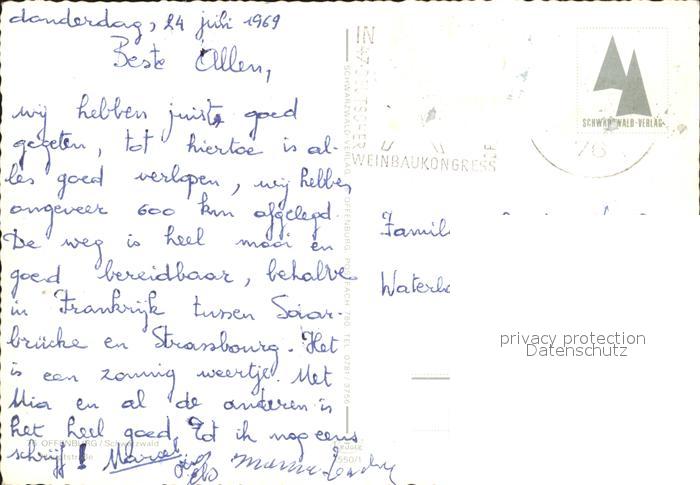 donderdag, 24 juli 1969
Beste Allen,
wij hebben juist goed
gegeten, tot hiertoe is al-
les goed verlopen, wij hebben
ongeveer 600 km afgelegd.
De weg is heel mooi en
goed bereidbaar, behalve
in Frankrijk tussen Saar-
brücke en Strassbourg. Het
is een zonnig weertje. Met
Mia en al de anderen is
het heel goed. Tot ik nog eens
schrijf! Marcel
OFFENBURG / Schwarzwald
IN
WEINBAUKONGRESS
SCHWARZWALD-VERLAG
76
SCHWARZWALD-VERLAG OFFENBURG POSTFACH 780 TEL. 0781/3756
Famili
Waterl
privacy protection
Datenschutz